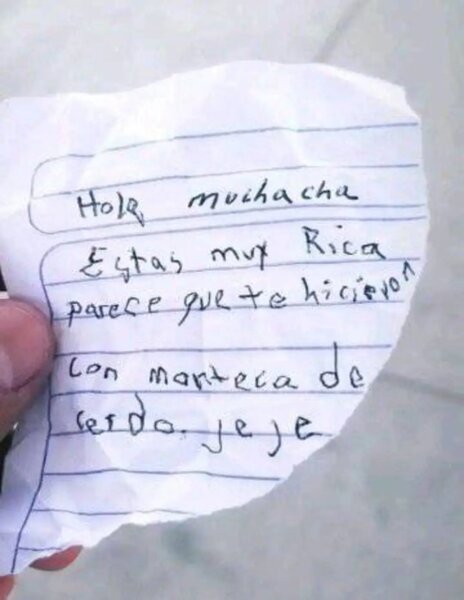 Hola muchacha
Estas muy Rica
parece que te hicieron
con manteca de
cerdo. jeje